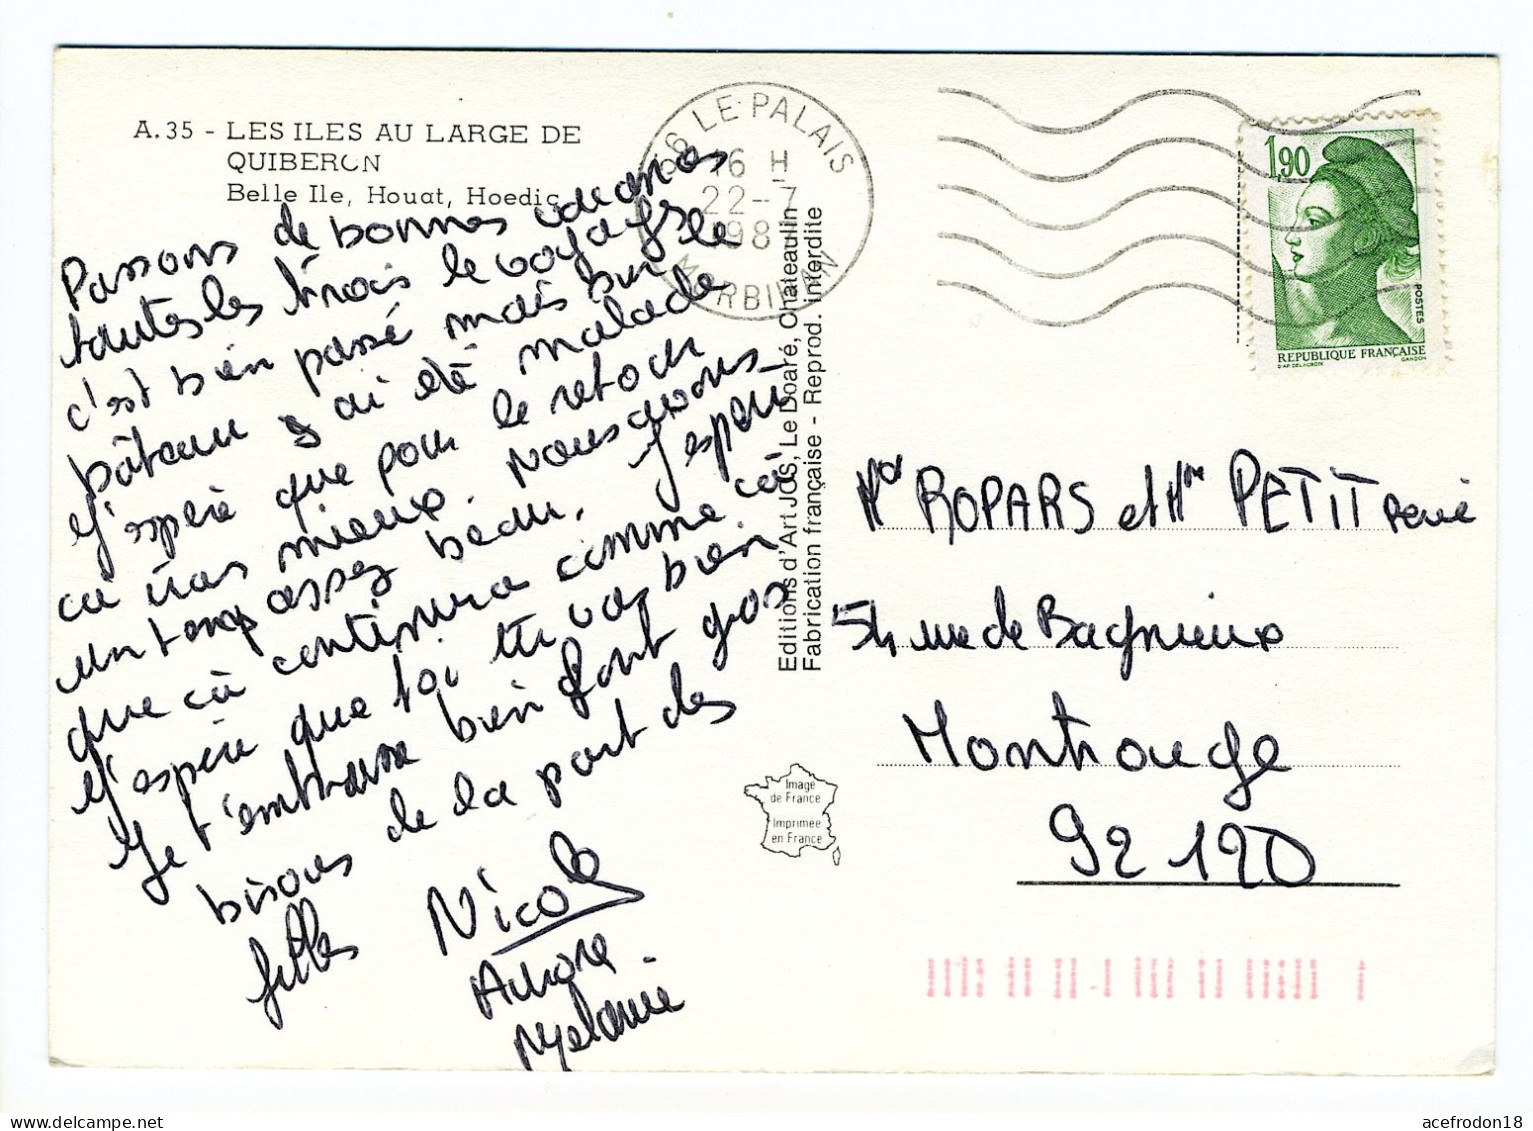 A.35 - LES ILES AU LARGE DE
QUIBERON
Belle Ile, Houat, Hoedic
56 LE PALAIS
16 H
22-7
198
MORBIHAN
1,90
POSTES
REPUBLIQUE FRANÇAISE
D'AP. DELACROIX GANDON
Passons de bonnes vacances
toutes les trois le voyage
c'est bien passé mais sur le
bâteau j'ai été malade
J'espère que pour le retour
ça iras mieux. Nous avons
un temps assez beau, J'espère
que ça continura comme ça
J'espère que toi tu vas bien.
Je t'embrasse bien font gros
bisous de la part des
filles Nicole
Aurore
Mélanie
Editions d'Art JOS, Le Doaré, Chateaulin
Fabrication française - Reprod. interdite
Image
de France
Imprimée
en France
ROPARS et Mr PETIT René
54 rue de Bagnieux
Montrouge
92120
acefrodon18